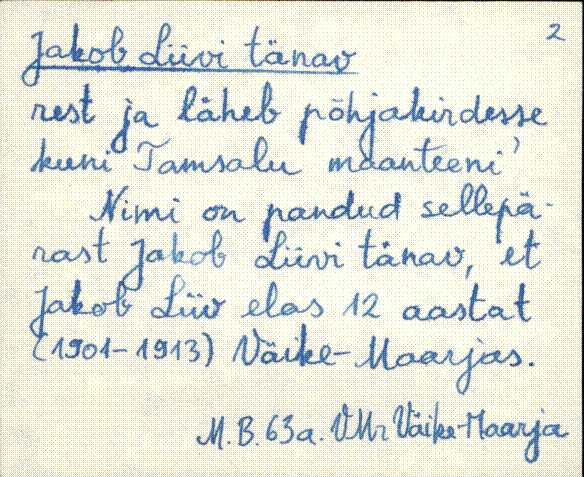 2
Jakob Liivi tänav
rest ja läheb põhjakirdesse
kuni Tamsalu maanteeni'
Nimi on pandud sellepä-
rast Jakob Liivi tänav, et
Jakob Liiv elas 12 aastat
(1901-1913) Väike-Maarjas.
M.B. 63a. VMr Väike-Maarja